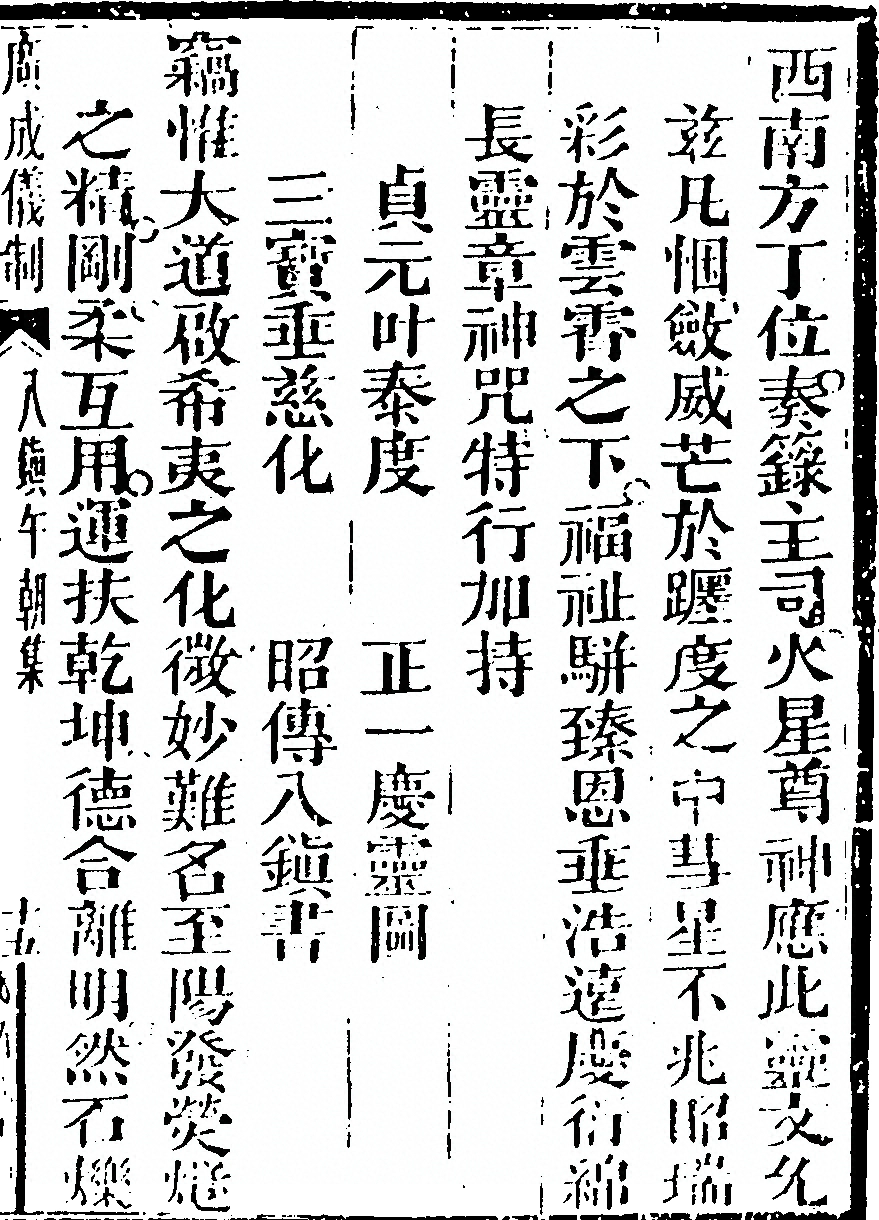 西南方丁位奏籙主司火星尊神應此靈文允
茲凡悃斂威芒於躔度之中彗星不兆昭瑞
彩於雲霄之下福祉駢臻恩垂浩遠慶衍綿
長靈章神咒特行加持
貞元叶泰度 正一慶靈圖
三寶垂慈化 昭傳八鎮書
竊惟大道啟希夷之化微妙難名至陽發熒煌
之精剛柔互用運扶乾坤德合離明然石爍
廣成儀制 八鎮午朝集